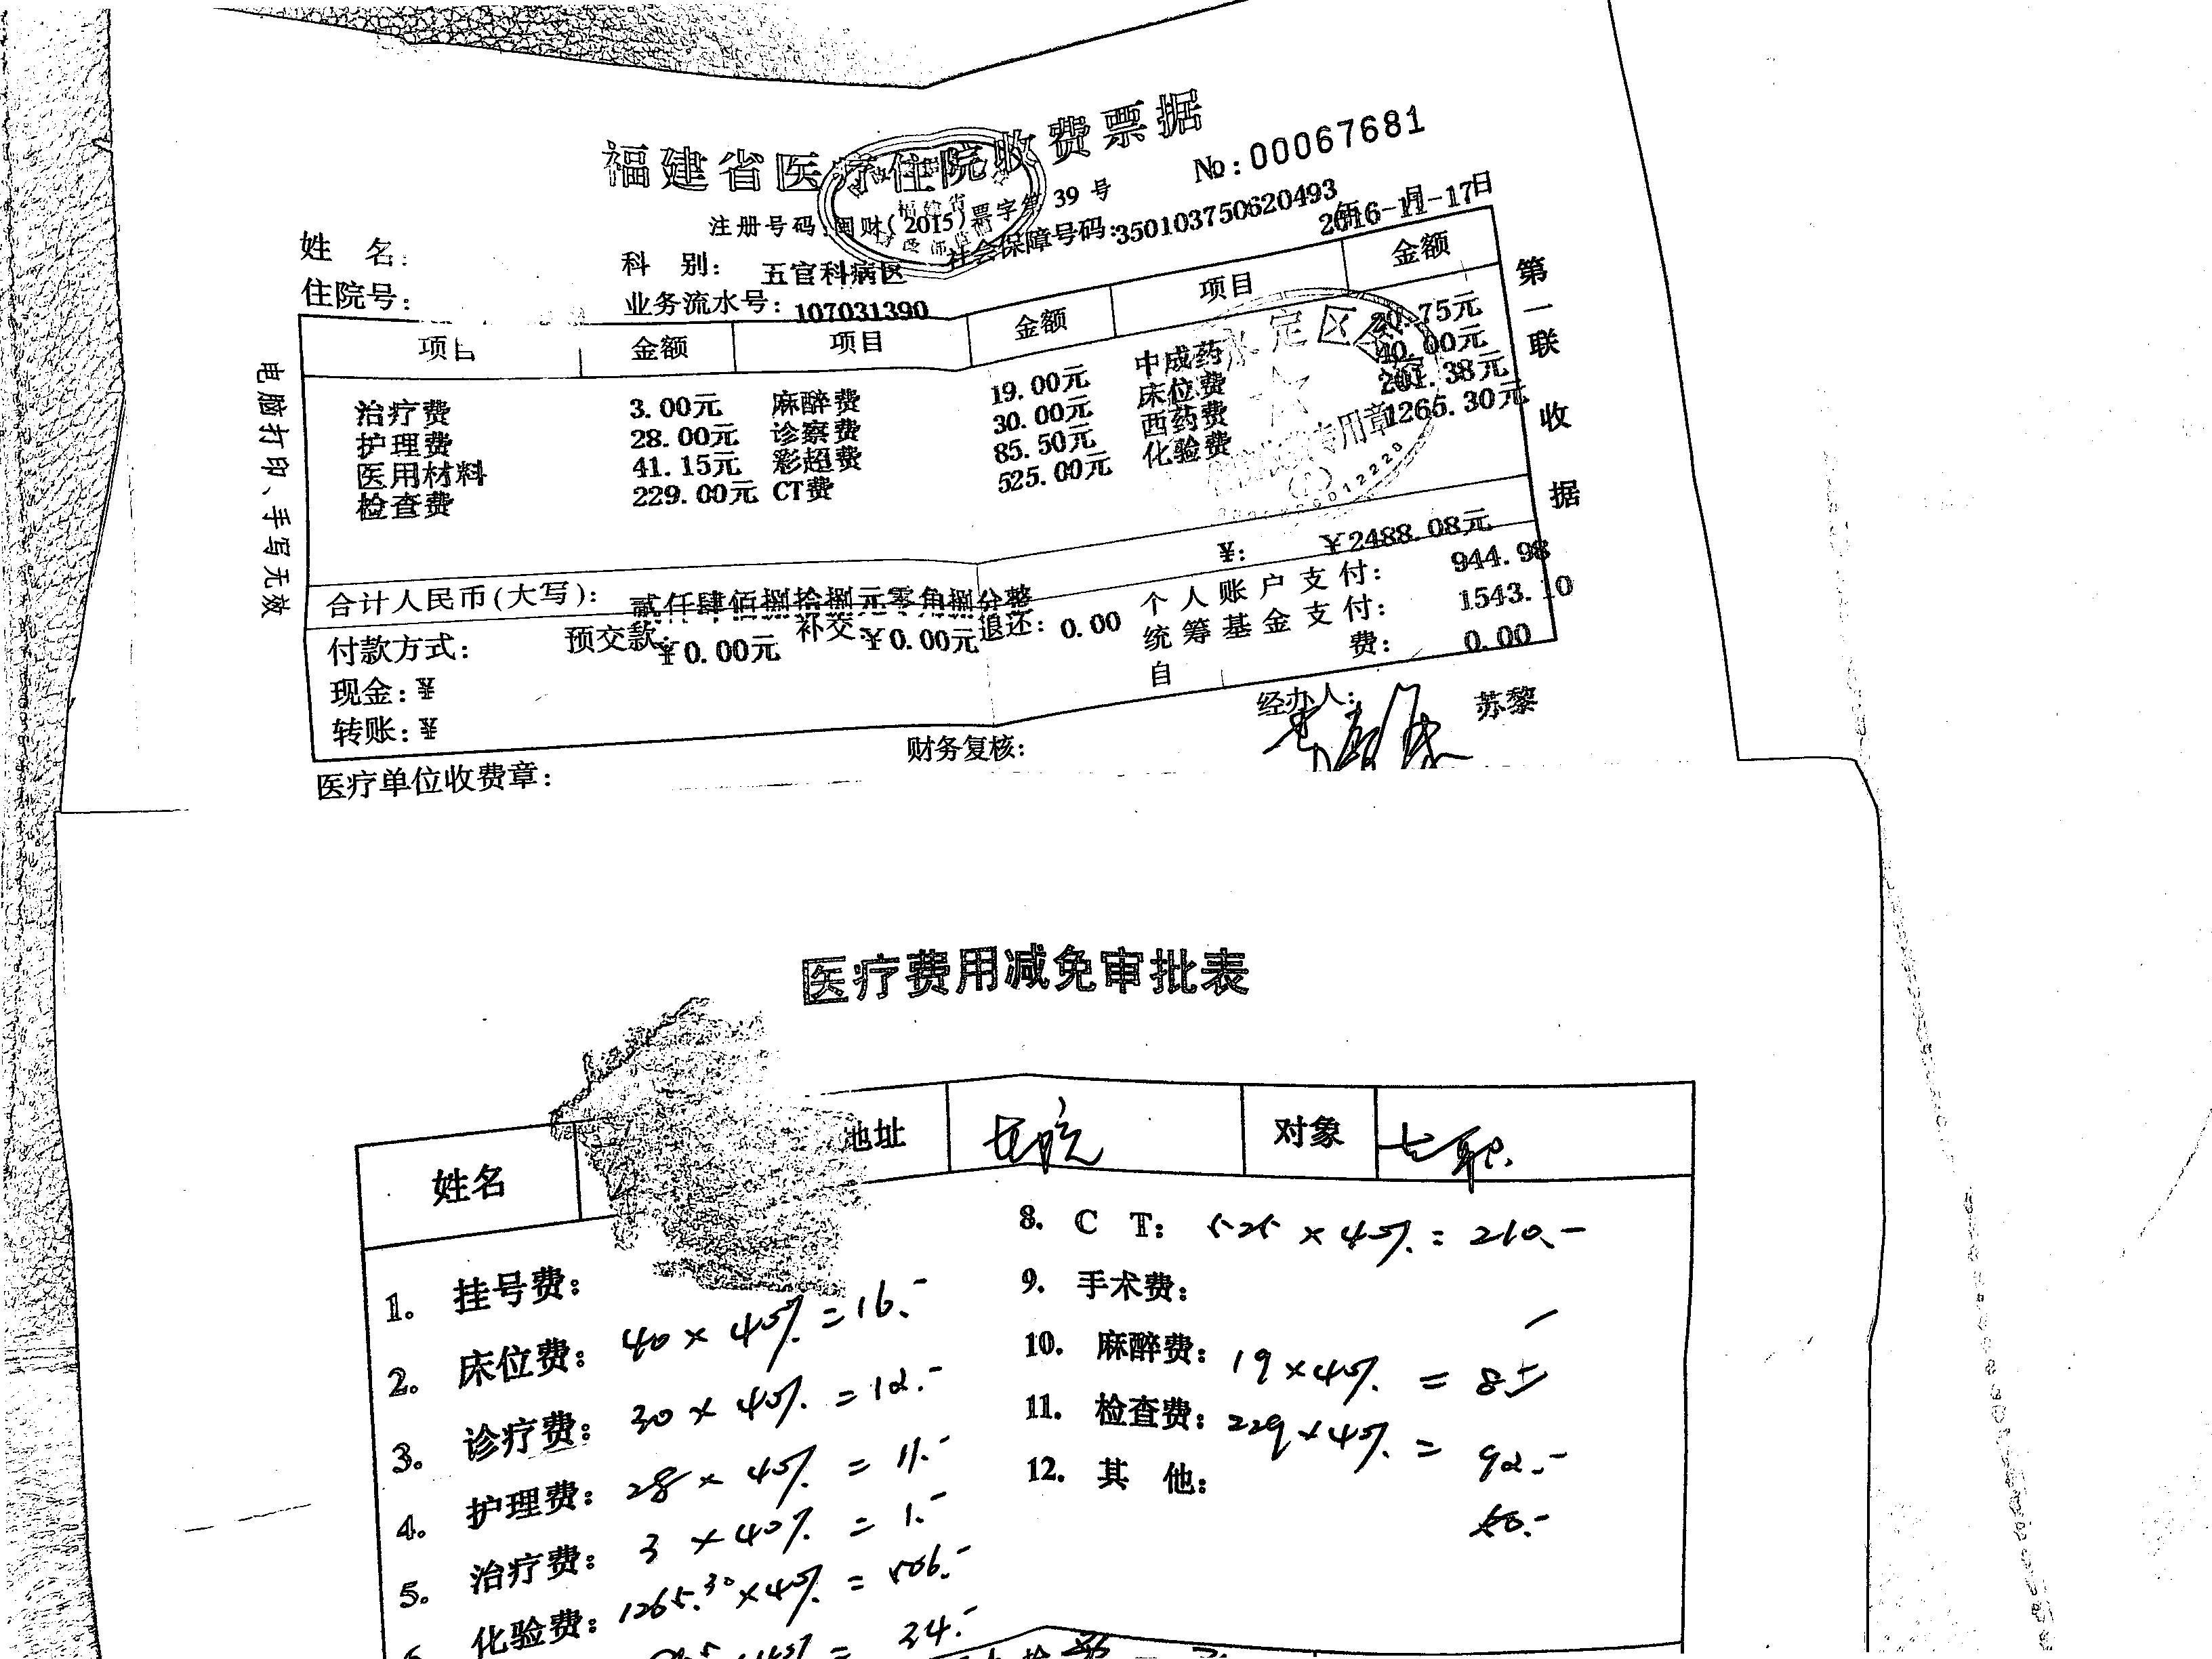 福建省医疗住院收费票据
No:00067681
注册号码:闽财(2015)票字第 39 号
社会保障号码:350103750620493
2016-11-17日
姓 名:
科 别: 五官科病区
住院号:
业务流水号:107031390
项目 金额 项目 金额 项目 金额
治疗费 3.00元 麻醉费 19.00元 中成药 20.75元
护理费 28.00元 诊察费 30.00元 床位费 40.00元
医用材料 41.15元 彩超费 85.50元 西药费 201.38元
检查费 229.00元 CT费 525.00元 化验费 1265.30元
合计人民币(大写): 贰仟肆佰捌拾捌元零角捌分整 ¥: ¥2488.08元
付款方式: 预交款:¥0.00元 补交:¥0.00元 退还:0.00
个人账户支付: 944.98
统筹基金支付: 1543.10
自 费: 0.00
现金:¥
转账:¥
医疗单位收费章:
财务复核:
经办人: 苏黎
电脑打印、手写无效
第一联 收据
永定区
专用章
医疗费用减免审批表
姓名
地址
对象
1. 挂号费:
2. 床位费: 40×40%=16.-
3. 诊疗费: 30×40%=12.-
4. 护理费: 28×40%=11.-
5. 治疗费: 3×40%=1.-
化验费: 1265.30×40%=506.-
34.-
8. C T: 525×40%=210.-
9. 手术费:
10. 麻醉费: 19×40%=8.-
11. 检查费: 229×40%=92.-
12. 其 他: